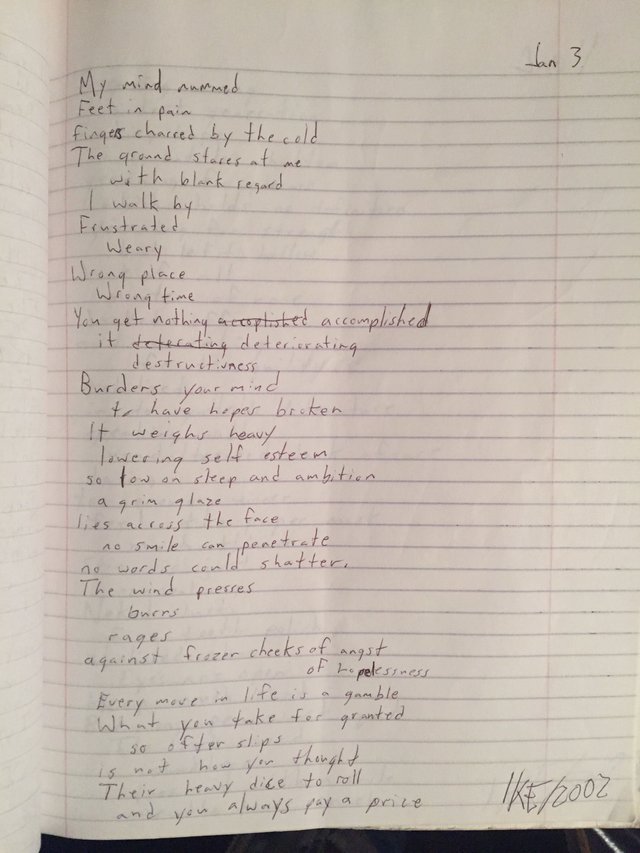 Jan 3
My mind nummed
Feet in pain
Fingers charred by the cold
The ground stares at me
with blank regard
I walk by
Frustrated
Weary
Wrong place
Wrong time
You get nothing accoplished accomplished
it deterating deteriorating
destructivness
Burders your mind
to have hopes broken
It weighs heavy
lowering self esteem
so low on sleep and ambition
a grim glaze
lies across the face
no smile can penetrate
no words could shatter.
The wind presses
burrs
rages
against frozen cheeks of angst
of hopelessness
Every move in life is a gamble
What you take for granted
so often slips
is not how you thought
Their heavy dice to roll
and you always pay a price
IKE/2002